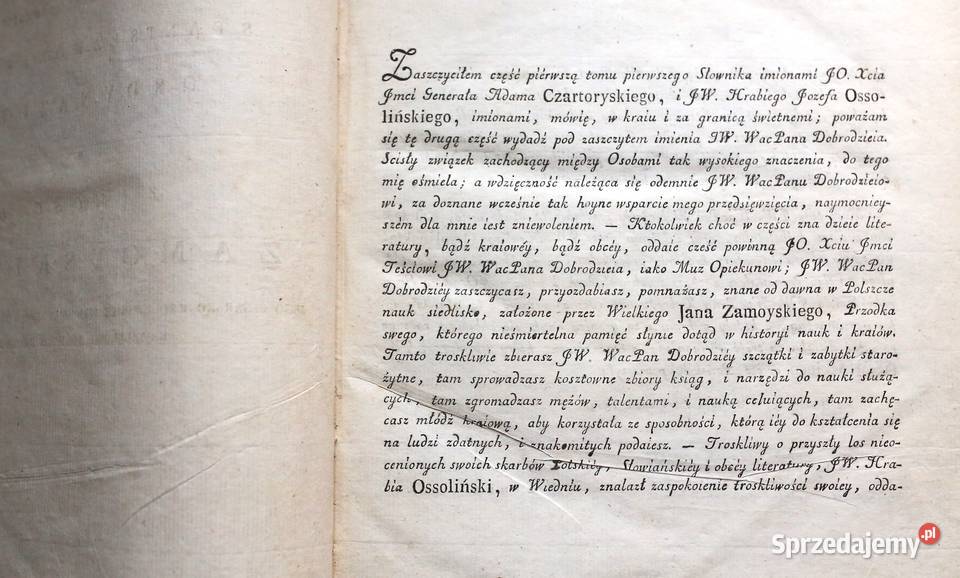 Zaszczyciłem część piérwszą tomu pierwszego Słownika imionami JO. Xcia
Jmci Generała Adama Czartoryskiego, i JW. Hrabiego Jozefa Osso-
lińskiego, imionami, mówię, w kraiu i za granicą świetnemi; poważam
się tę drugą część wydadź pod zaszczytem imienia JW. WacPana Dobrodzieia.
Scisły związek zachodzący między Osobami tak wysokiego znaczenia, do tego
mię ośmiela; a wdzięczność należąca się odemnie JW. WacPanu Dobrodzieio-
wi, za doznane wcześnie tak hoyne wsparcie mego przedsięwzięcia, naymocniey-
szém dla mnie iest zniewoleniem. — Ktokolwiek choć w części zna dzieie lite-
ratury, bądź kraiowéy, bądź obcéy, oddaie cześć powinną JO. Xciu Jmci
Teściowi JW. WacPana Dobrodzieia, iako Muz Opiekunowi; JW. WacPan
Dobrodziéy zaszczycasz, przyozdabiasz, pomnażasz, znane od dawna w Polszcze
nauk siedlisko, założone przez Wielkiego Jana Zamoyskiego, Przodka
swego, którego nieśmiertelna pamięć słynie dotąd w historyi nauk i kraiów.
Tamto troskliwie zbierasz JW. WacPan Dobrodziéy szczątki i zabytki staro-
żytne, tam sprowadzasz kosztowne zbiory ksiąg, i narzędzi do nauki służą-
cych, tam zgromadzasz mężów, talentami, i nauką celuiących, tam zachę-
casz młódź kraiową, aby korzystała ze sposobności, którą iéy do kształcenia się
na ludzi zdatnych, i znakomitych podaiesz. — Troskliwy o przyszły los nieo-
cenionych swoich skarbów Polskiéy, Słowiańskiéy i obcéy literatury, JW. Hra-
bia Ossoliński, w Wiedniu, znalazł zaspokoienie troskliwości swoiey, odda-
Sprzedajemy.pl